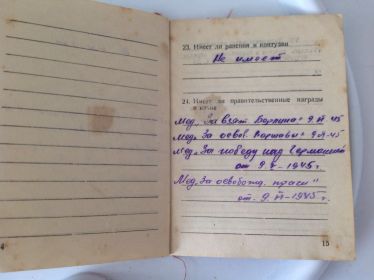 23. Имеет ли ранения и контузии
Не имеет
24. Имеет ли правительственные награды
и какие
Мед. „За взят. Берлина" 9.VI-45
Мед. За освоб. Варшавы 9.VI-45
Мед. За победу над Германией
от 9.V-1945г.
Мед „За освобожд. праги"
от. 9.VI-1945г.
15